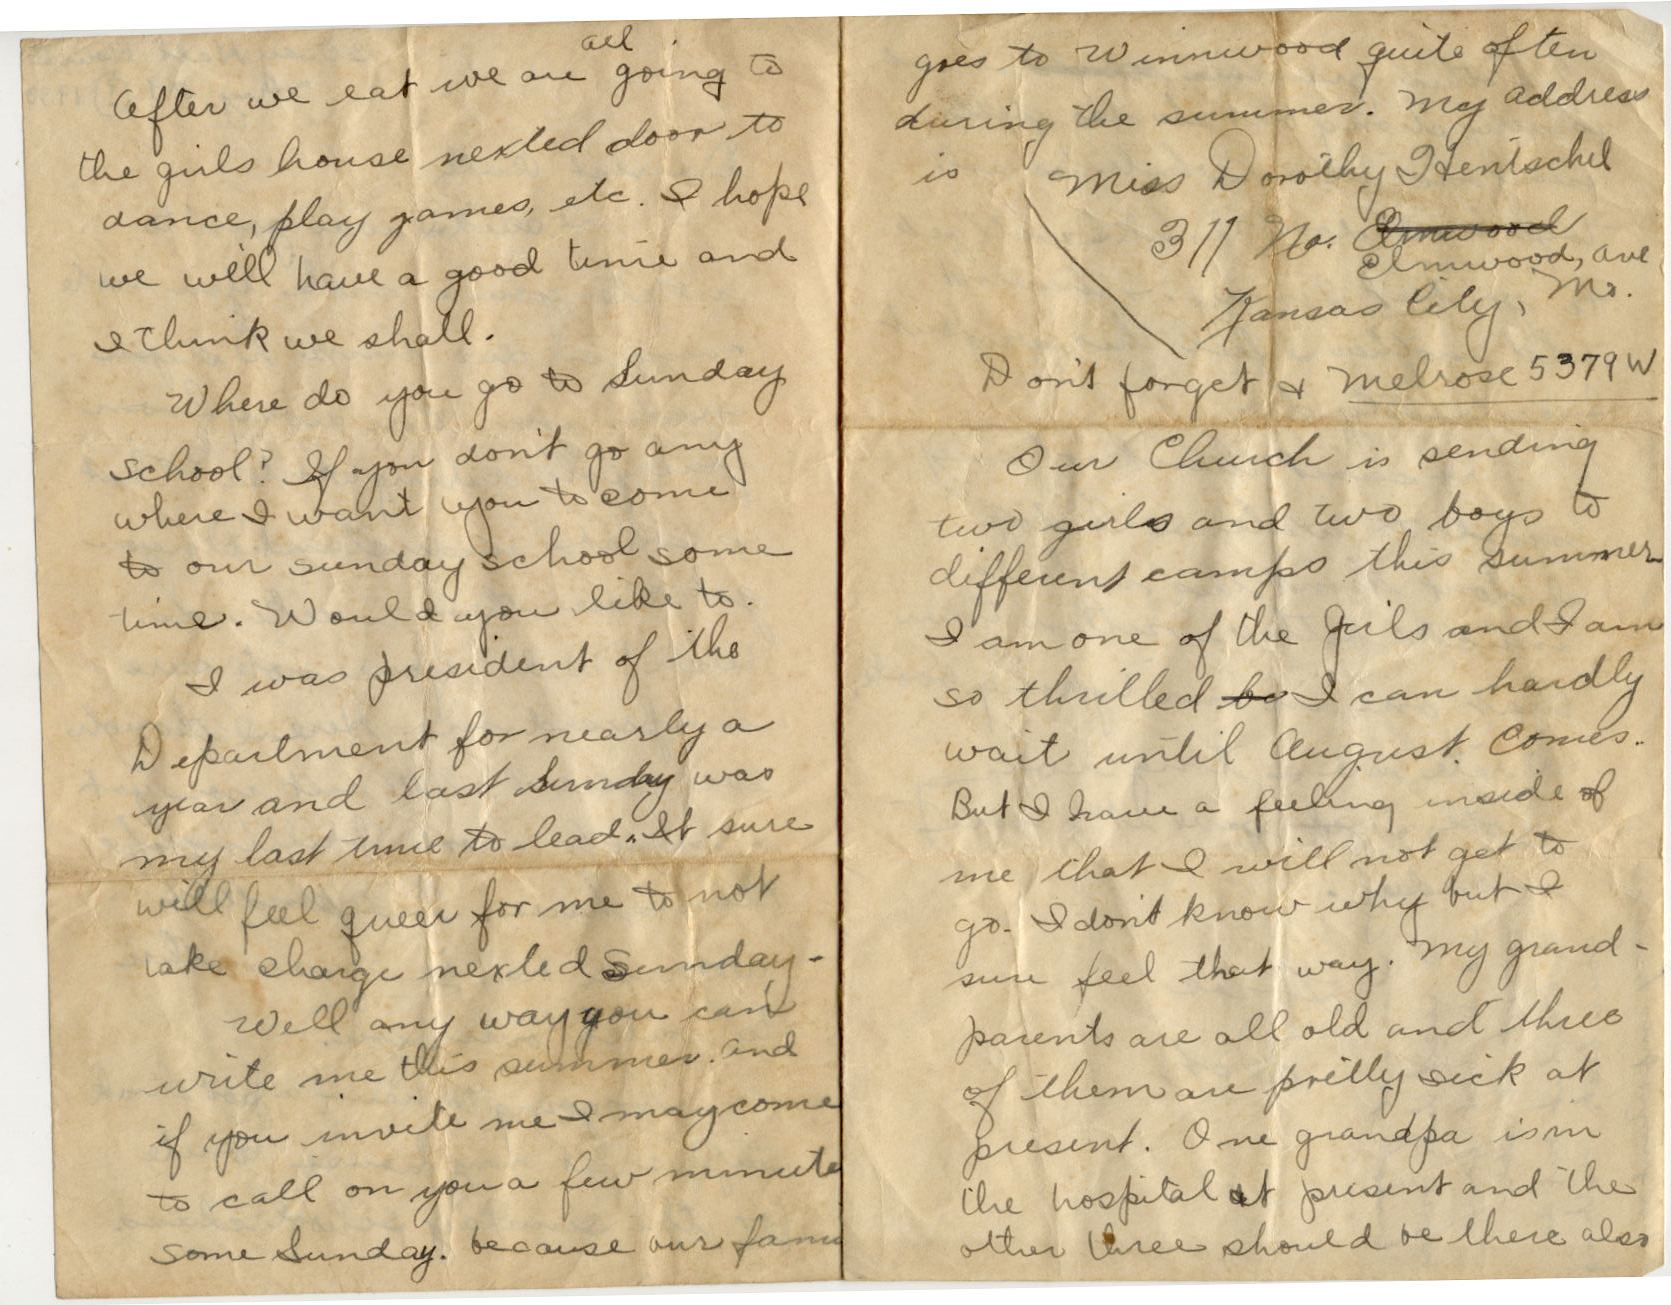 all
After we eat we are going to
the girls house nexted door to
dance, play games, etc. I hope
we we'll have a good time and
I think we shall.
Where do you go to Sunday
School? If you don't go any
where I want you to come
to our sunday school some
time. Would you like to.
I was president of the
Department for nearly a
year and last Sunday was
my last time to lead. It sure
will feel queer for me to not
take charge nexted Sunday.
Well any way you can
write me this summer. and
if you invite me I may come
to call on you a few minute
some Sunday. because our fami
goes to Winnwood quite often
during the summer. My address
is Miss Dorothy Hentschel
311 No. Elmwood
Elmwood, ave
Kansas City, Mo.
Don't forget & Melrose 5379W
Our Church is sending
two girls and two boys to
different camps this summer
I am one of the girls and I am
so thrilled be I can hardly
wait until August. Comes.
But I have a feeling inside of
me that I will not get to
go. I don't know why but I
sure feel that way. My grand-
parents are all old and three
of them are pretty sick at
present. One grandpa is in
the hospital at present and the
other three should be there also